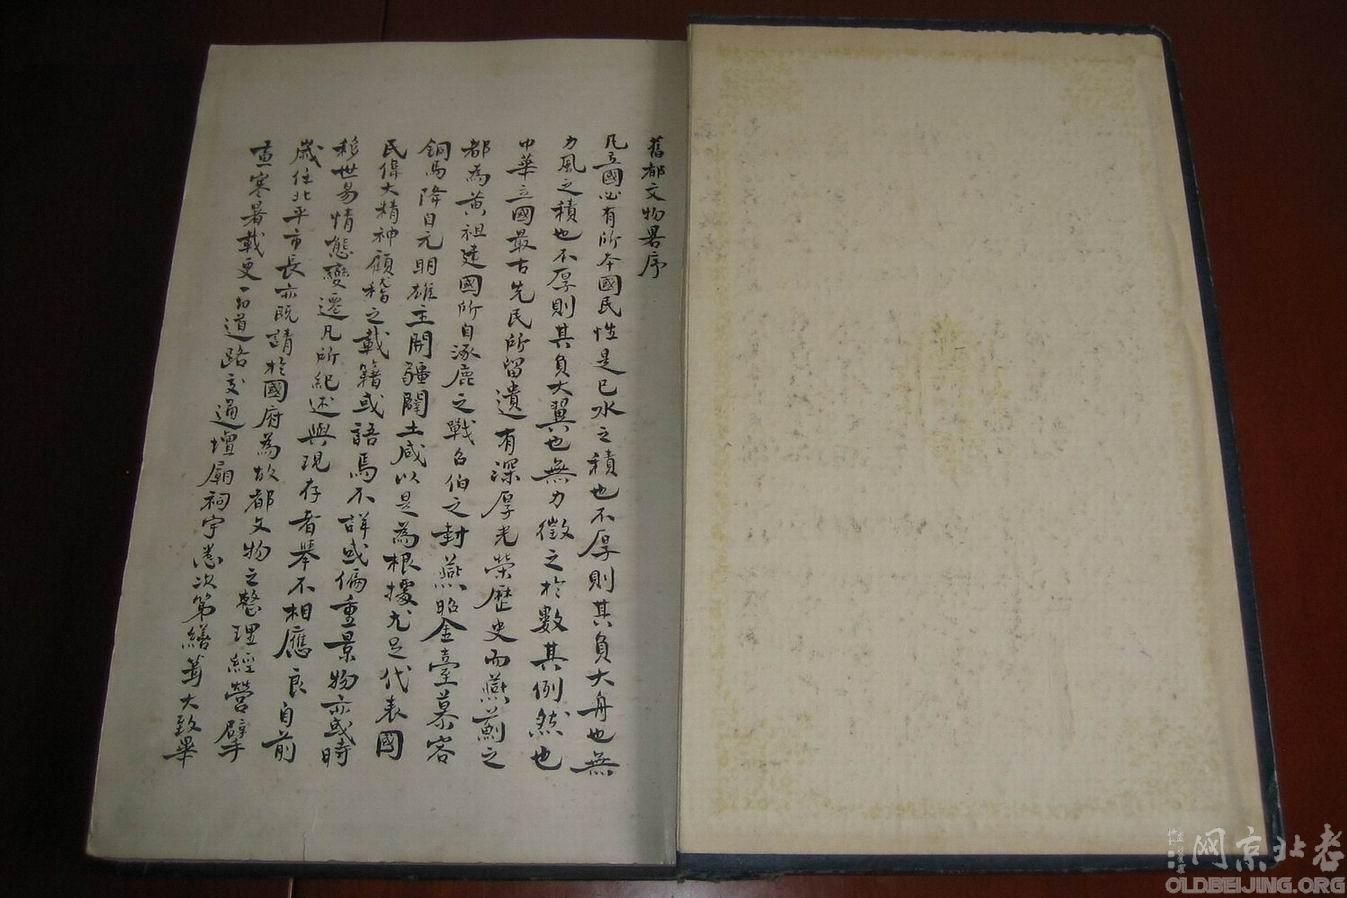 舊都文物畧序
凡立國必有所本國民性是已水之積也不厚則其負大舟也無
力風之積也不厚則其負大翼也無力徵之於數其例然也
中華立國最古先民所留遺有深厚光榮歷史而燕薊之
都為黃祖建國所自涿鹿之戰召伯之封燕昭金臺慕容
銅馬降自元明雄主開疆闢土咸以是為根據尤足代表國
民偉大精神顧稽之載籍或語焉不詳或偏重景物亦或時
移世易情態變遷凡所紀述與現存者舉不相應良自前
歲任北平市長亦既請於國府為故都文物之整理經營擘
畫寒暑載更一切道路交通壇廟祠宇悉次第繕葺大致畢
老北京网
OLDBEIJING.ORG